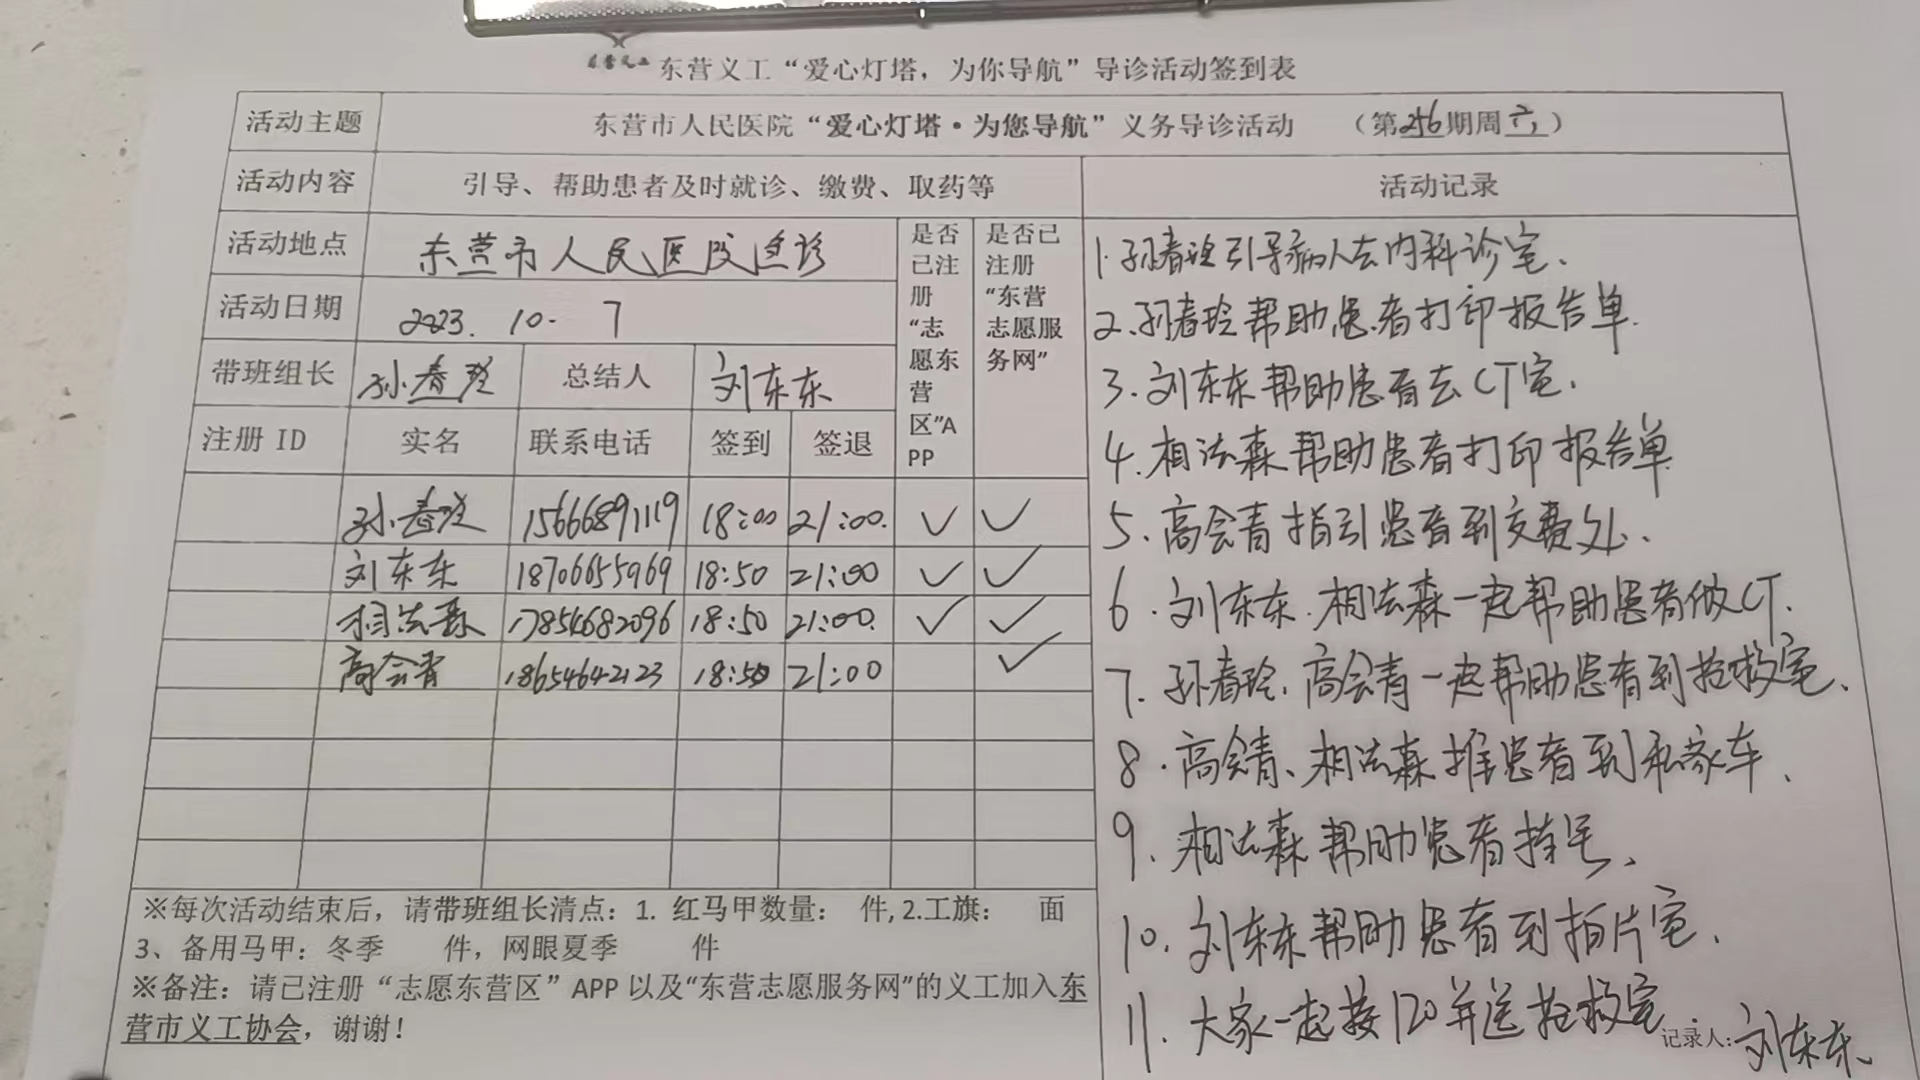 东营义工 东营义工“爱心灯塔，为你导航”导诊活动签到表
活动主题 东营市人民医院“爱心灯塔·为您导航”义务导诊活动 （第256期周六）
活动内容 引导、帮助患者及时就诊、缴费、取药等 活动记录
活动地点 东营市人民医院急诊
是否已注册“志愿东营区”APP
是否已注册“东营志愿服务网”
活动日期 2023.10.7
带班组长 孙春玲 总结人 刘东东
注册 ID 实名 联系电话 签到 签退
孙春玲 15666891119 18:00 21:00. ✓ ✓
刘东东 18706655969 18:50 21:00 ✓ ✓
相法森 17854682096 18:50 21:00. ✓ ✓
高会青 18654642123 18:50 21:00 ✓
※每次活动结束后，请带班组长清点：1. 红马甲数量： 件, 2.工旗： 面
3、备用马甲：冬季 件，网眼夏季 件
※备注：请已注册“志愿东营区”APP 以及“东营志愿服务网”的义工加入东
营市义工协会，谢谢！
1.孙春玲引导病人去内科诊室.
2.孙春玲帮助患者打印报告单.
3.刘东东帮助患者去CT室.
4.相法森帮助患者打印报告单
5.高会青指引患者到交费处.
6.刘东东.相法森一起帮助患者做CT.
7.孙春玲.高会青一起帮助患者到抢救室.
8.高会青、相法森推患者到私家车.
9.相法森帮助患者挂号.
10.刘东东帮助患者到拍片室.
11.大家一起接120并送抢救室
记录人：刘东东.